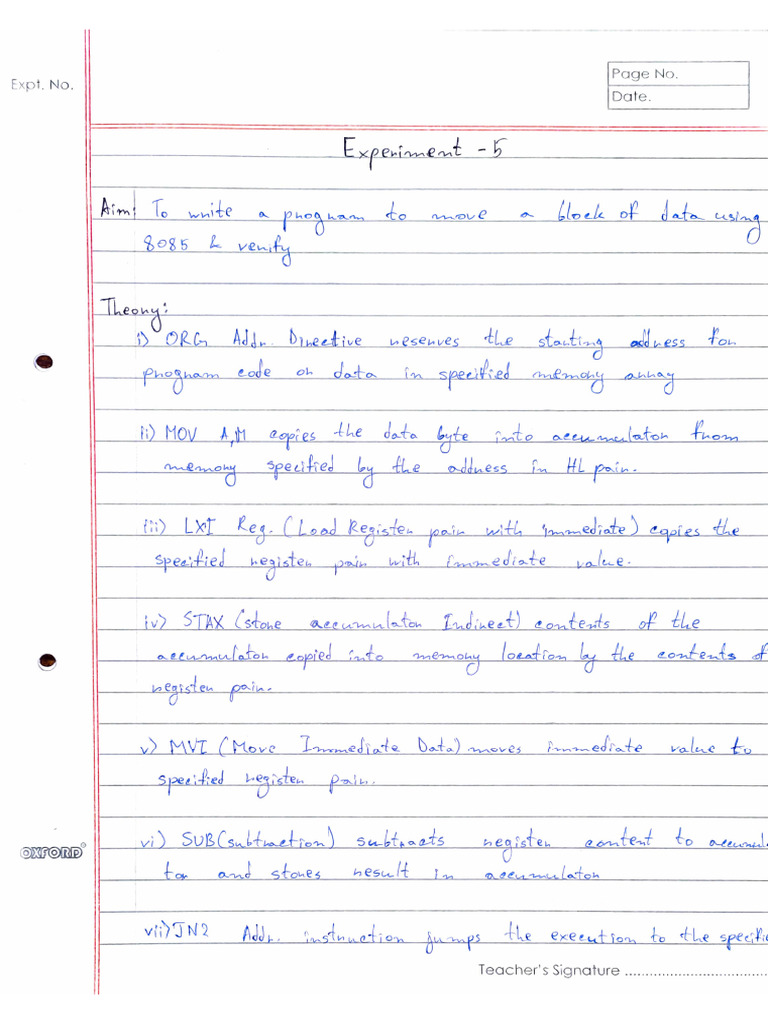 Expt. No.
Page No.
Date.
Experiment - 5
Aim: To write a program to move a block of data using
8085 & verify
Theory:
i) ORG Addr. Directive reserves the starting address for
program code or data in specified memory array
ii) MOV A,M copies the data byte into accumulator from
memory specified by the address in HL pair.
iii) LXI Reg. (Load Register pair with immediate) copies the
specified register pair with immediate value.
iv) STAX (store accumulator Indirect) contents of the
accumulator copied into memory location by the contents of
register pair.
v) MVI (Move Immediate Data) moves immediate value to
specified register pair.
vi) SUB (subtraction) subtracts register content to accumul
tor and stores result in accumulator
OXFORD
vii) JNZ Addr. instruction jumps the execution to the specifi
Teacher's Signature ....................................